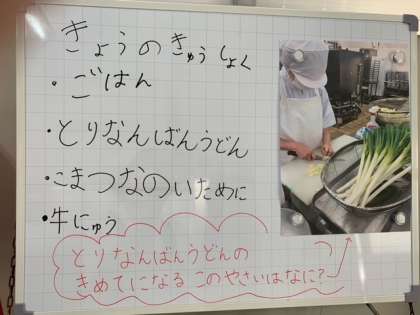 きょうのきゅうしょく
・ごはん
・とりなんばんうどん
・こまつなのいために
・牛にゅう
とりなんばんうどんの
きめてになる このやさいはなに?